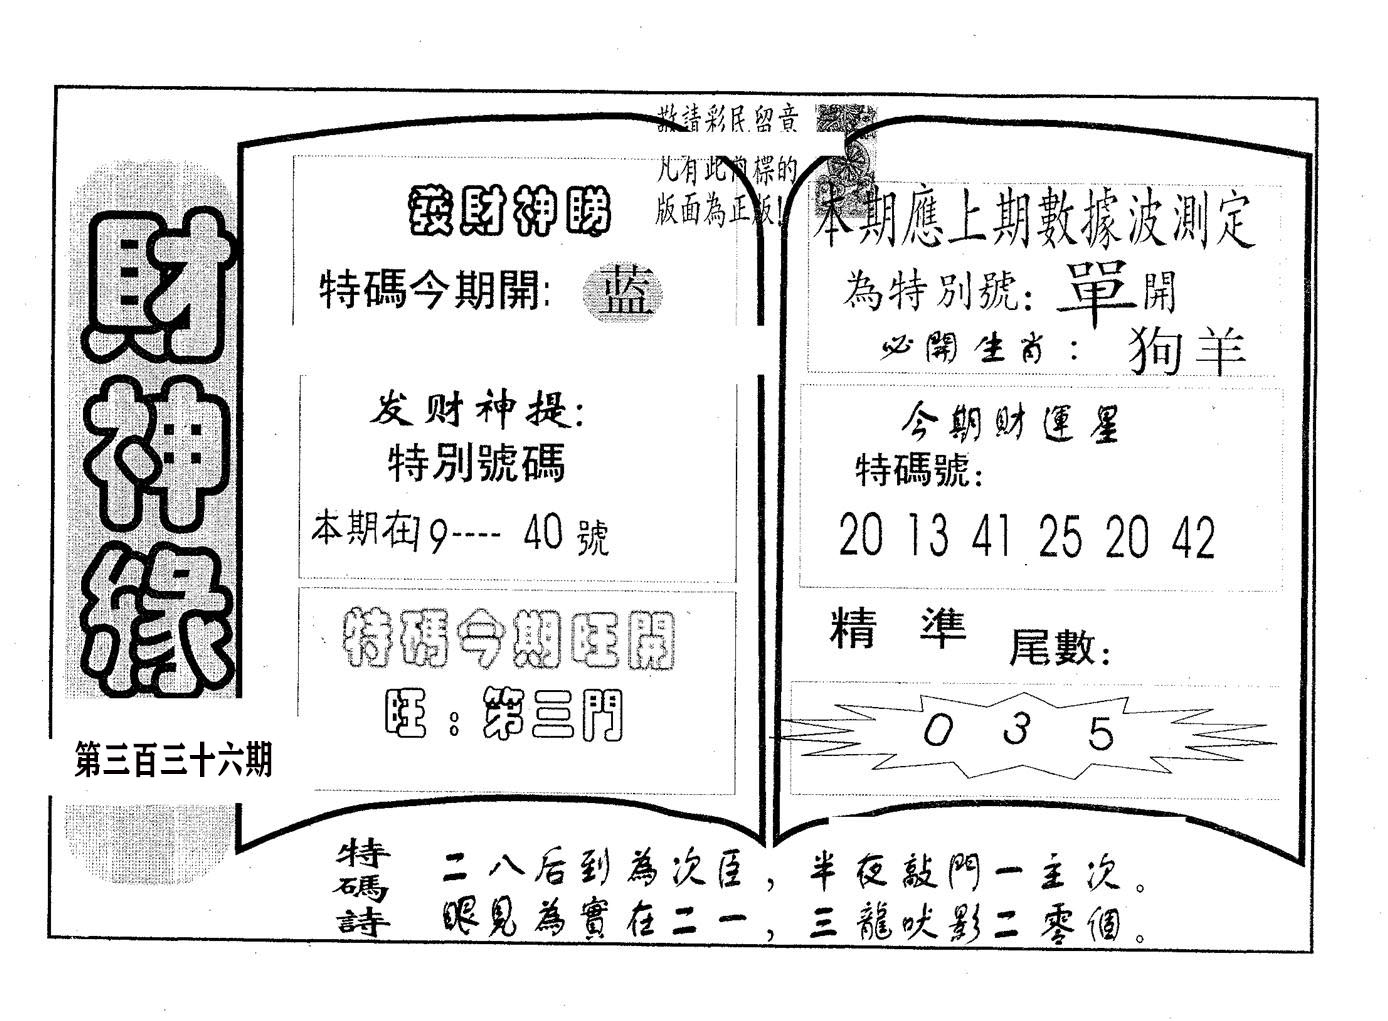 財神緣
第三百三十六期
敬請彩民留意
凡有此商標的
版面為正版!
發財神睇
特碼今期開: 蓝
发财神提:
特別號碼
本期在19---- 40號
特碼今期旺開
旺:第三門
本期應上期數據波測定
為特別號: 單開
必開生肖: 狗羊
今期財運星
特碼號:
20 13 41 25 20 42
精準尾數:
0 3 5
特碼詩
二八后到為次臣,半夜敲門一主次。
眼見為實在二一,三龍吠影二零個。